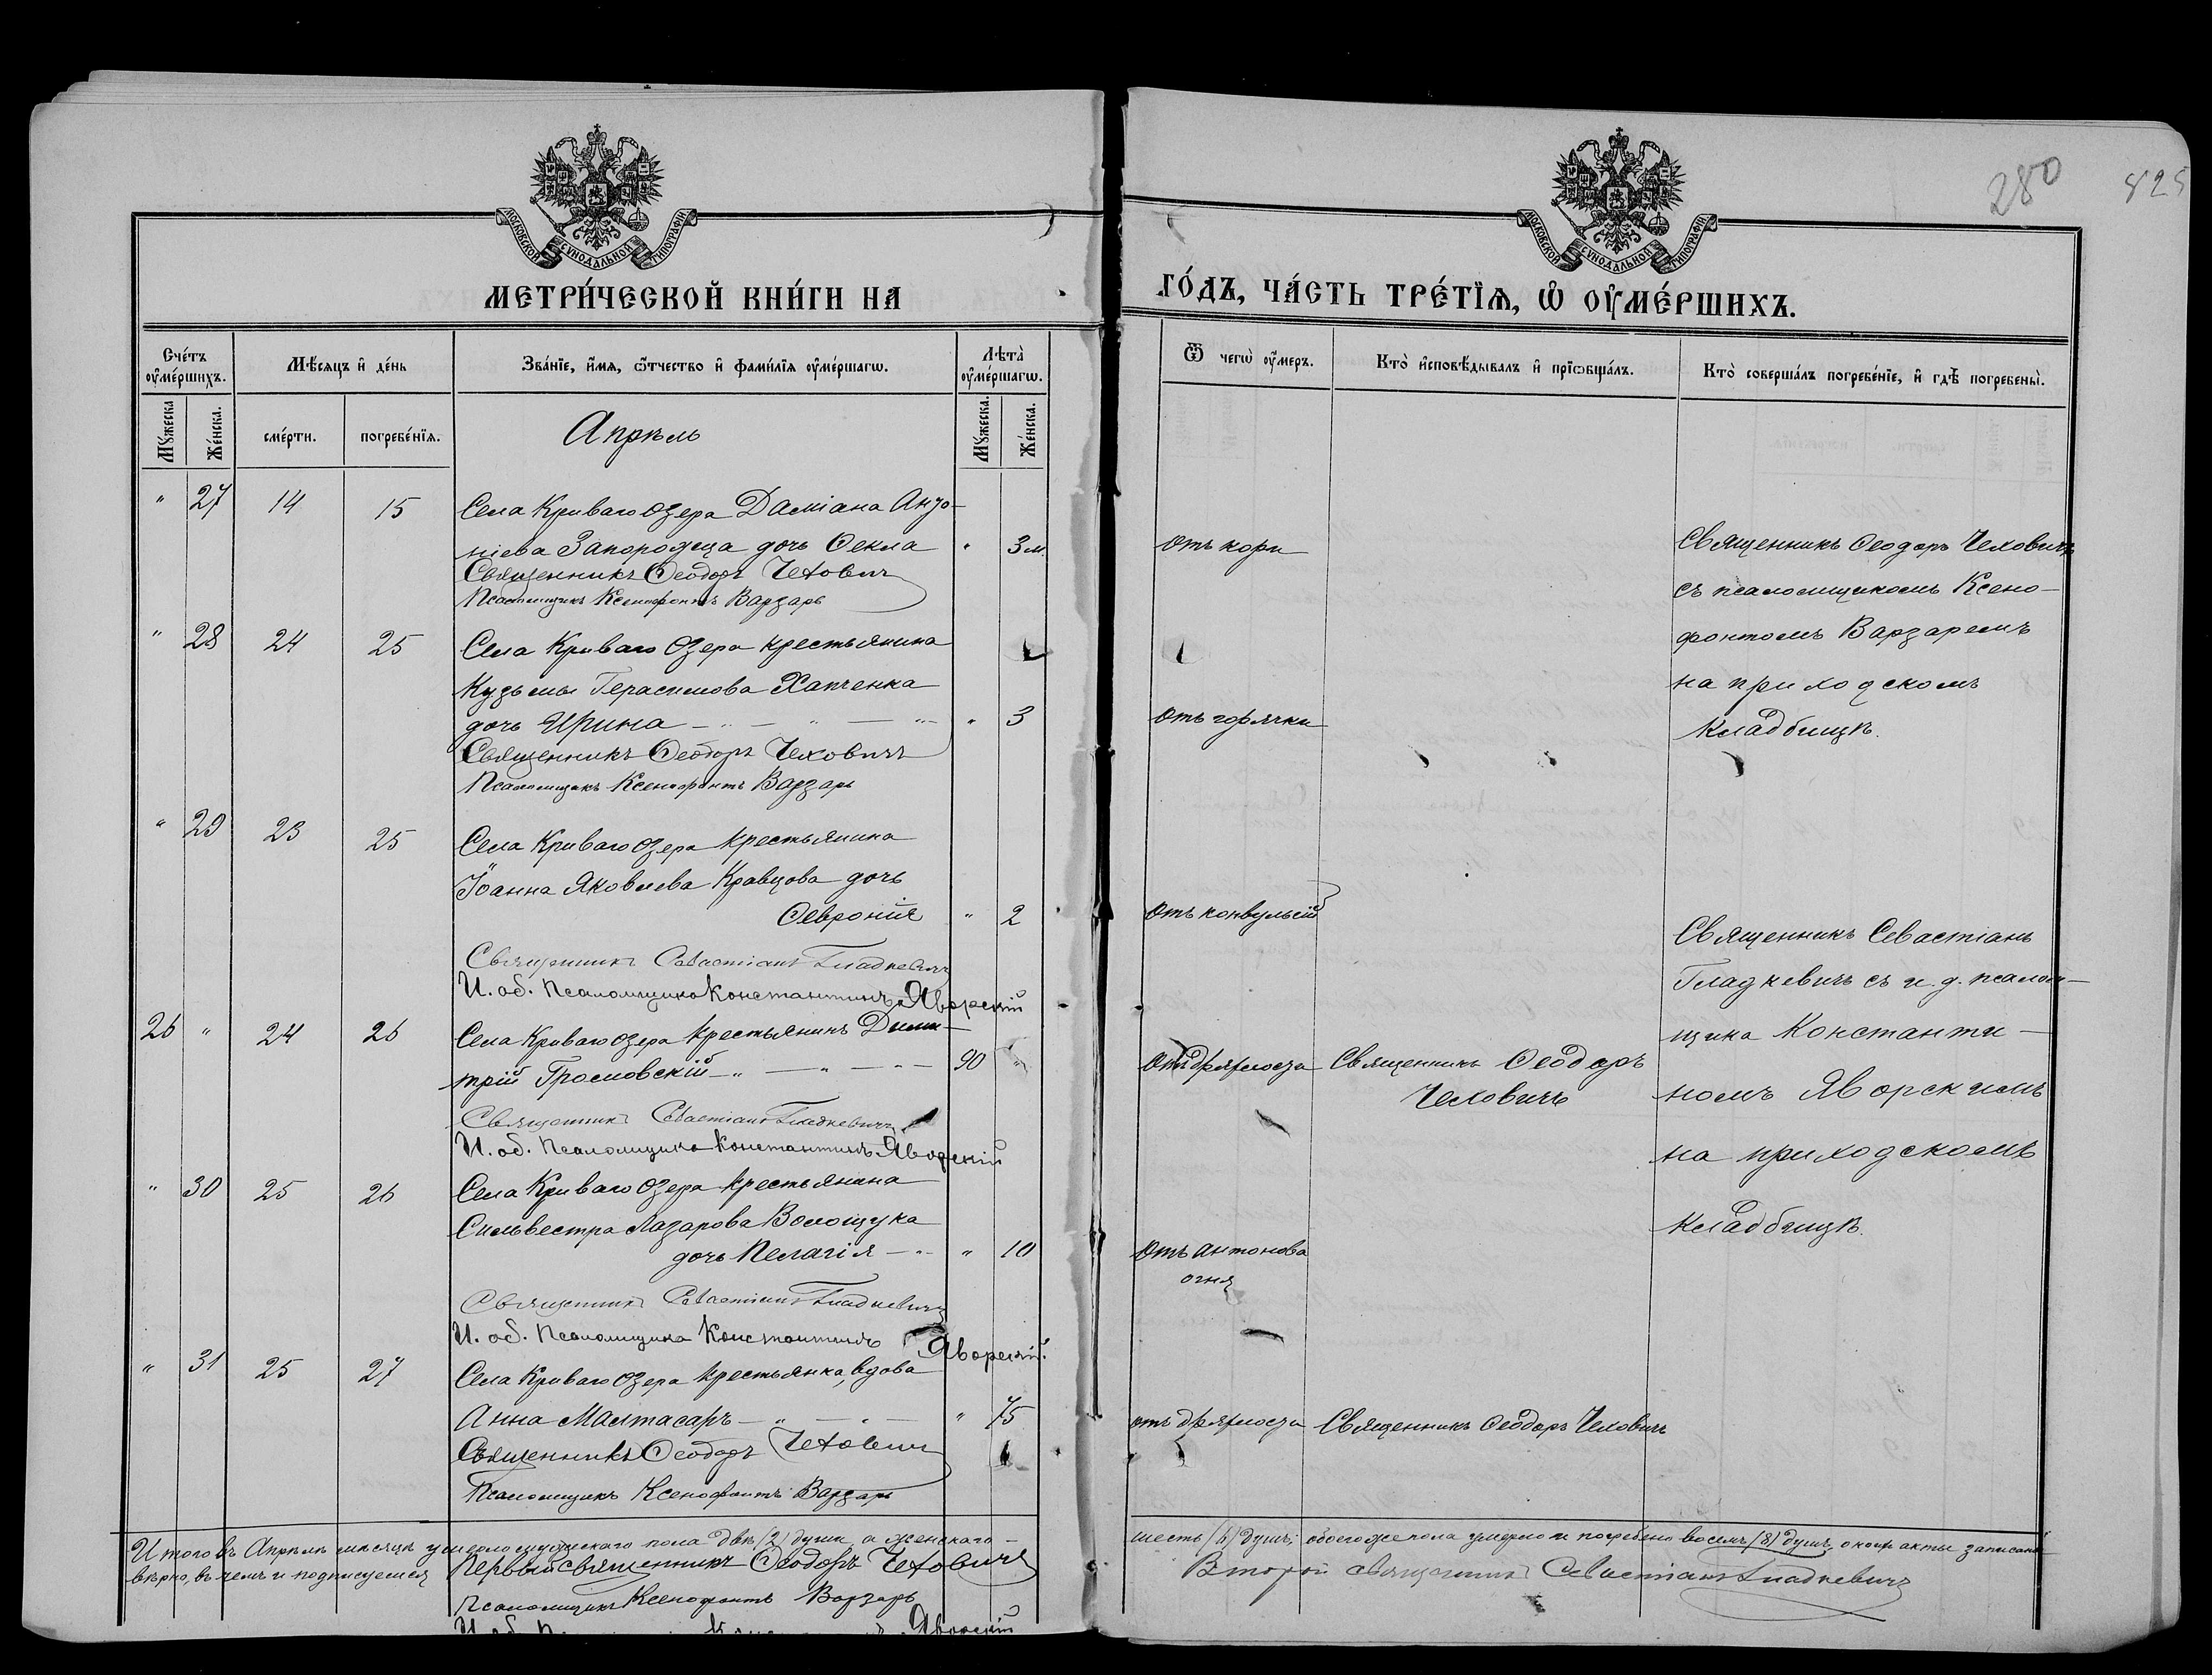 280
825
МОСКОВСКОЙ СУНОДАЛЬНОЙ ТИПОГРАФІИ
МОСКОВСКОЙ СУНОДАЛЬНОЙ ТИПОГРАФІИ
МЕТРИ́ЧЕСКОЙ КНИ́ГИ НА
ГО́ДЪ, ЧА́СТЬ ТРЕ́ТЇѦ, Ѡ҆ ОУ҆МЕ́РШИХЪ.
Сче́тъ оу҆ме́ршихъ.
Мѣ́сяцъ и҆ де́нь
Зва́нїе, и҆́мя, ѻ҆́тчество и҆ фами́лїя оу҆ме́ршагѡ.
Лѣ́та̀ оу҆ме́ршагѡ.
Ѿ чегѡ̀ оу҆́меръ.
Кто̀ и҆сповѣ́дывалъ и҆ прїѡбща́лъ.
Кто̀ соверша́лъ погребе́нїе, и҆ гдѣ̀ погребены̀.
Мꙋ́жеска
Же́нска.
сме́рти.
погребе́нїя.
Мꙋ́жеска.
Же́нска.
Апрѣль
" 27 14 15 Села Криваго Озера Даміана Анто-
ніева Запорожца дочь Ѳекла " 3 м.
Священникъ Ѳеодоръ Чехович
Псаломщикъ Ксенофонтъ Варзарь
отъ кори
Священникъ Ѳеодоръ Чеховичъ
съ псаломщикомъ Ксено-
фонтомъ Варзаремъ
на приходскомъ
кладбищѣ.
" 28 24 25 Села Криваго Озера крестьянина
Кузьмы Герасимова Хапченка
дочь Ирина — " — " — " " 3
Священникъ Ѳеодоръ Чеховичъ
Псаломщикъ Ксенофонтъ Варзарь
отъ горячки
" 29 23 25 Села Криваго Озера крестьянина
Іоанна Яковлева Кравцова дочь
Ѳевронія " 2
Священникъ Севастіанъ Гладкевичъ
И. об. Псаломщика Константинъ Яворскій
отъ конвульсій
Священникъ Севастіанъ
Гладкевичъ съ и. д. псалом-
щика Константи-
номъ Яворскимъ
на приходскомъ
кладбищѣ.
26 " 24 26 Села Криваго Озера крестьянинъ Дими-
трій Громовскій — " — " — " — 90 "
Священникъ Севастіанъ Гладкевичъ
И. об. Псаломщика Константинъ Яворскій
отъ дряхлости
Священникъ Ѳеодоръ
Чеховичъ
" 30 25 26 Села Криваго Озера крестьянина
Сильвестра Лазарова Волощука
дочь Пелагія — " " 10
Священникъ Севастіанъ Гладкевичъ
И. об. Псаломщика Константинъ Яворскій.
отъ антонова
огня
" 31 25 27 Села Криваго Озера крестьянка, вдова
Анна Малтасаръ — " — " — " 75
Священникъ Ѳеодоръ Чехович
Псаломщикъ Ксенофонтъ Варзарь
отъ дряхлости
Священникъ Ѳеодоръ Чеховичъ
Итого въ Апрѣлѣ мѣсяцѣ умерло мужскаго пола двѣ (2) души, а женскаго —
шесть (6) душъ; обоего же пола умерло и погребено восемь (8) душъ, о коихъ акты записаны
вѣрно, въ чемъ и подписуемся
Первый священникъ Ѳеодоръ Чеховичъ
Второй священникъ Севастіанъ Гладкевичъ
Псаломщикъ Ксенофонтъ Варзарь
Яворскій